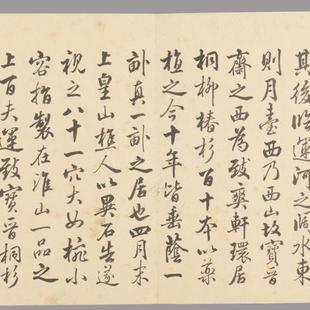 其後臨運河之闊水東
則月臺西乃西山故寶晉
齋之西為致爽軒環居
桐柳椿杉百十本以藥
植之今十年皆垂蔭一
畝真一畝之居也四月末
上皇山樵人以異石告遂
視之八十一穴大如椀小
容指製在淮山一品之
上百夫運致寶晉桐杉